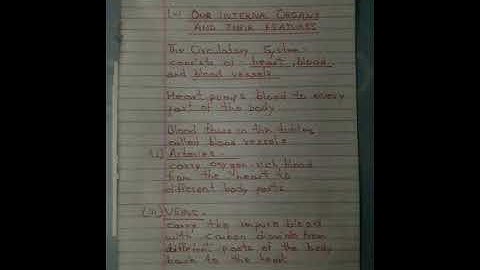 OUR INTERNAL ORGANS
AND THEIR FEATURES
The Circulatory System
consists of heart, blood
and blood vessels.
Heart pumps blood to every
part of the body
Blood flows in the tubes
called blood vessels
(i) Arteries -
carry oxygen-rich blood
from the heart to
different body parts
(ii) VEINS -
carry the impure blood
with carbon dioxide from
different parts of the body
back to the heart